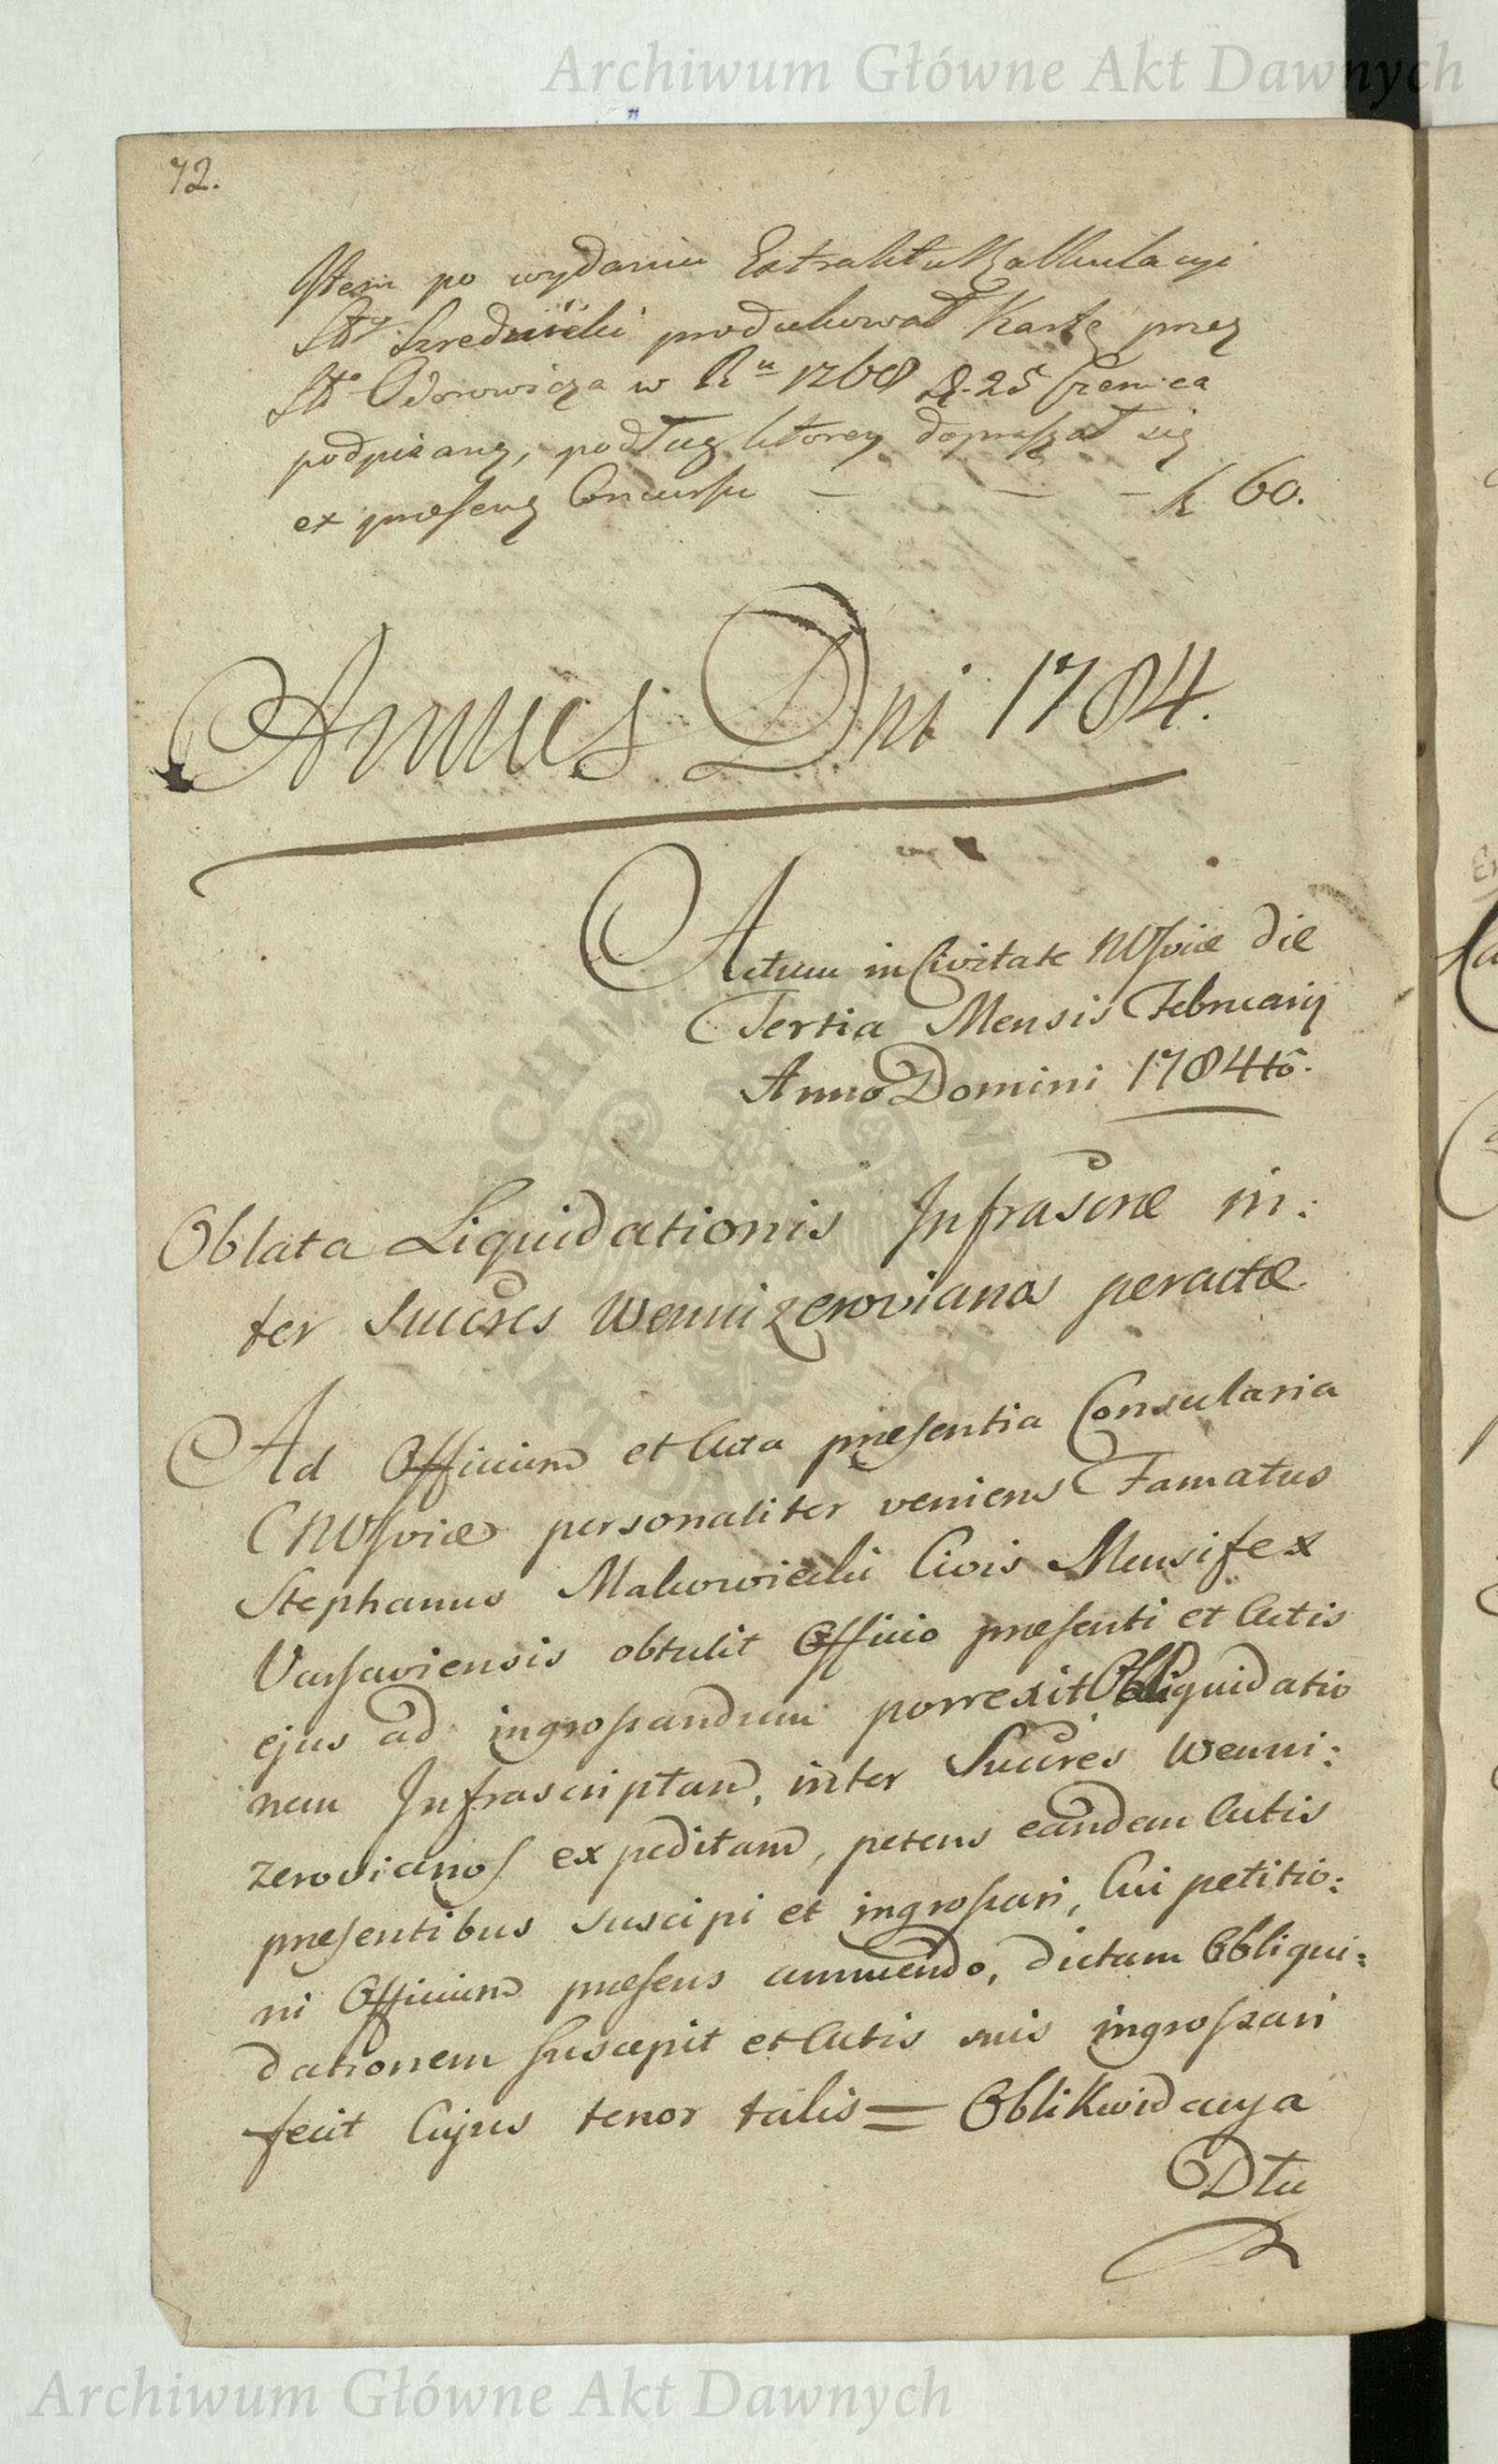 Archiwum Główne Akt Dawnych
72.
Item po wydaniu Extraktu Kalkulacyi
produkował Kartę przez
Odorowicza w Ru 1768 d. 25 Czerwca
podpisaną, podług ktorey dopraszał się
ex præsenq Concursu — — — fl 60.
Annus Dni 1784.
Actum in Civitate NVſviæ die
Tertia Mensis Februarij
Anno Domini 1784tô.
Oblata Liquidationis Infrascrıæ in:
ter Succres Wennizerovianos peractæ
Ad Officium et Acta præsentia Consularia
NVſviæ personaliter veniens Famatus
Stephanus Makowiecki Civis Mensifex
Varsaviensis obtulit Officio præsenti et Actis
ejus ad ingrossandum porrexit Obliquidatio
nem Infrascriptam, inter Succres Wenni:
zerovianos expeditam, petens eandem Actis
præsentibus suscipi et ingrossari, Cui petitio:
ni Officium præsens annuendo, dictam Obliqui:
dationem suscepit et Actis suis ingrossari
fecit Cujus tenor talis = Oblikwidacya
Dłu
Archiwum Główne Akt Dawnych